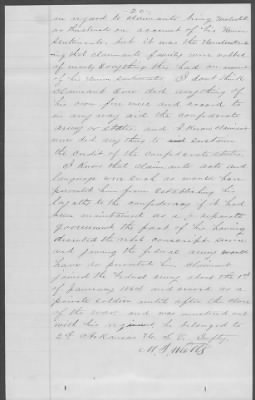 -20-
in regard to claimants being molested
or mistreated on account of his Union
Sentiments. but it was the understand-
ing that claimants family were robbed
of nearly Everything they had on account
of his Union Sentiments. I don't think
claimant Ever did anything of
his own free will and accord to
in any way aid the confederate
army or states, and I know claimant
never did any thing to sustain
the credit of the confederate states.
I Know that claimants acts and
language were such as would have
prevented him from Establishing his
loyalty to the confederacy if it had
been maintained as a separate
government the fact of his having
deserted the rebel conscript service
and joining the federal army would
have so prevented him. claimant
joined the Federal army about the 1st
of January 1864 and served as a
private soldier until after the close
of the war, and was mustered out
with his regiment he belonged to
2d Arkansas Inftry.